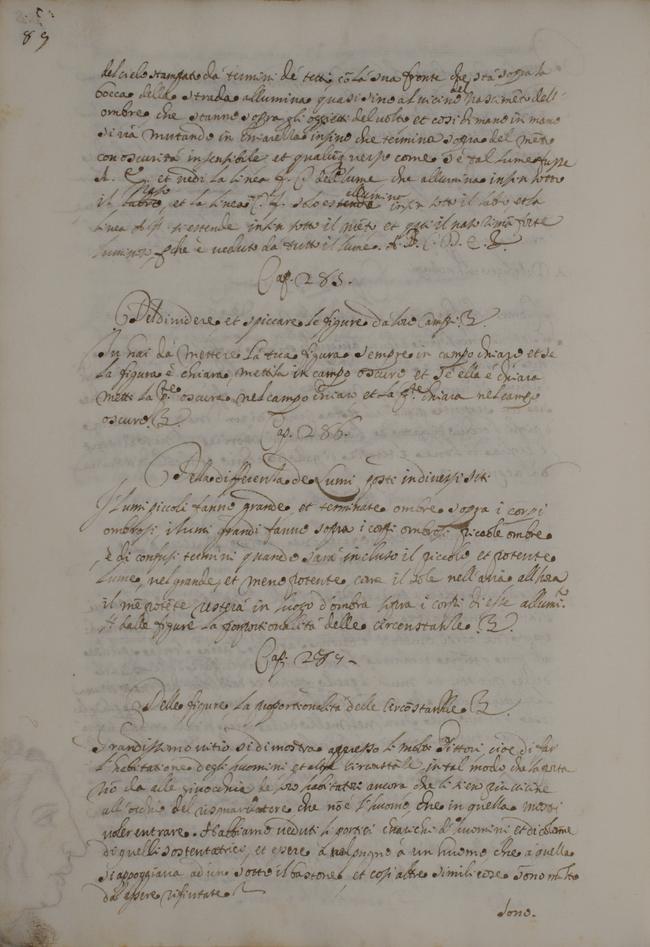 89
del cielo stampato da termini de tetti cō la sua fronte che stà sopra la
bocca della strada allumina quasi sino al vicino del nascimēto dell'
ombre che stanno sopra gli oggetti del volto et così di mano in mano
si và mutando in chiarezza insino che termina sopra del mēto
con oscurità insensibile et qualūq verso come s'è tal lume fusse
A. E. et vedi la linea f. C. del lume che allumina insin sotto
il naso, et la linea C. f. solo allumina insin sotto il labro et la
linea A H s'estende insin sotto il mēto et qui il naso rimā forte
luminoso pche è veduto da tutto il lume. A. B. C. D. E.
Cap. 285.
Del dividere et spiccare le figure da loro campi.
Tu hai da mettere la tua figura sempre in campo chiaro et se
la figura è chiara, mettila in campo oscuro et se ella è chiara
metti la pte oscura nel campo chiaro et la pte chiara nel campo
oscuro.
Cap. 286.
Della differenza de Lumi posti in diversi siti
I lumi piccoli fanno grande et terminate ombre sopra i corpi
ombrosi i lumi grandi fanno sopra i corpi ombrosi piccole ombre
è di confusi termini quando sarà incluso il piccolo et potente
lume, nel grande, et meno potente, come il sole nell'aria allhora
il mē potēte resterà in luogo d'ombra sopra i corpi di esse allumi.ti
dalle figure la proportionalità delle circonstantie.
Cap. 287.
Delle figure la proportionalità delle Circōstantie
Grandissimo vitio si dimostra appresso li molti Pittori cioè di far
l'habitatione degli huomini et altre circunstātie in tal modo che la porta
nō da alle ginocchia de loro habitatori ancora che li sien più vicine
all'occhio del risguardatore che nō è l'huomo che in quella mostri
voler entrare. Habbiamo veduti li portici charichi d'huomini et di colonne
di quelli sostentatrici, et essere à un pugno à un huomo che à quella
si appoggiava ad uso sottil bastone et così altre simili cose sono molto
da essere rifiutate
sono.